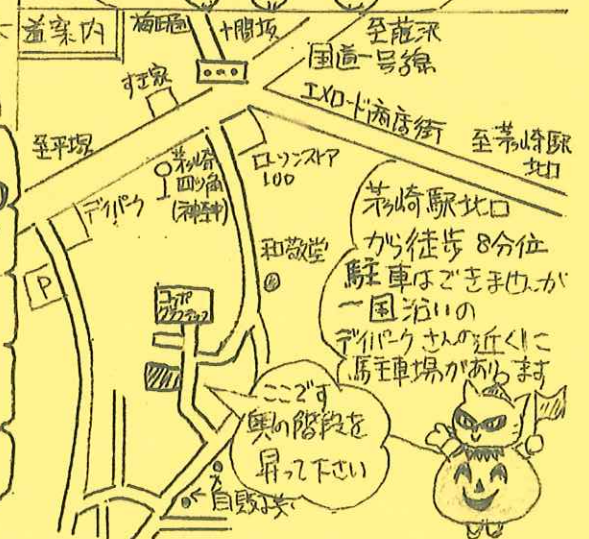 道案内
梅田通
十間坂
至藤沢
国道一号線
すき家
エメロード商店街
至平塚
至茅ヶ崎駅
北口
茅ヶ崎
四ツ角
(神奈中)
ローソンストア
100
デイパーク
P
和敬堂
茅ヶ崎駅北口
から徒歩8分位
駐車はできませんが
一国沿いの
デイパークさんの近くに
駐車場があります
ここです
奥の階段を
昇って下さい